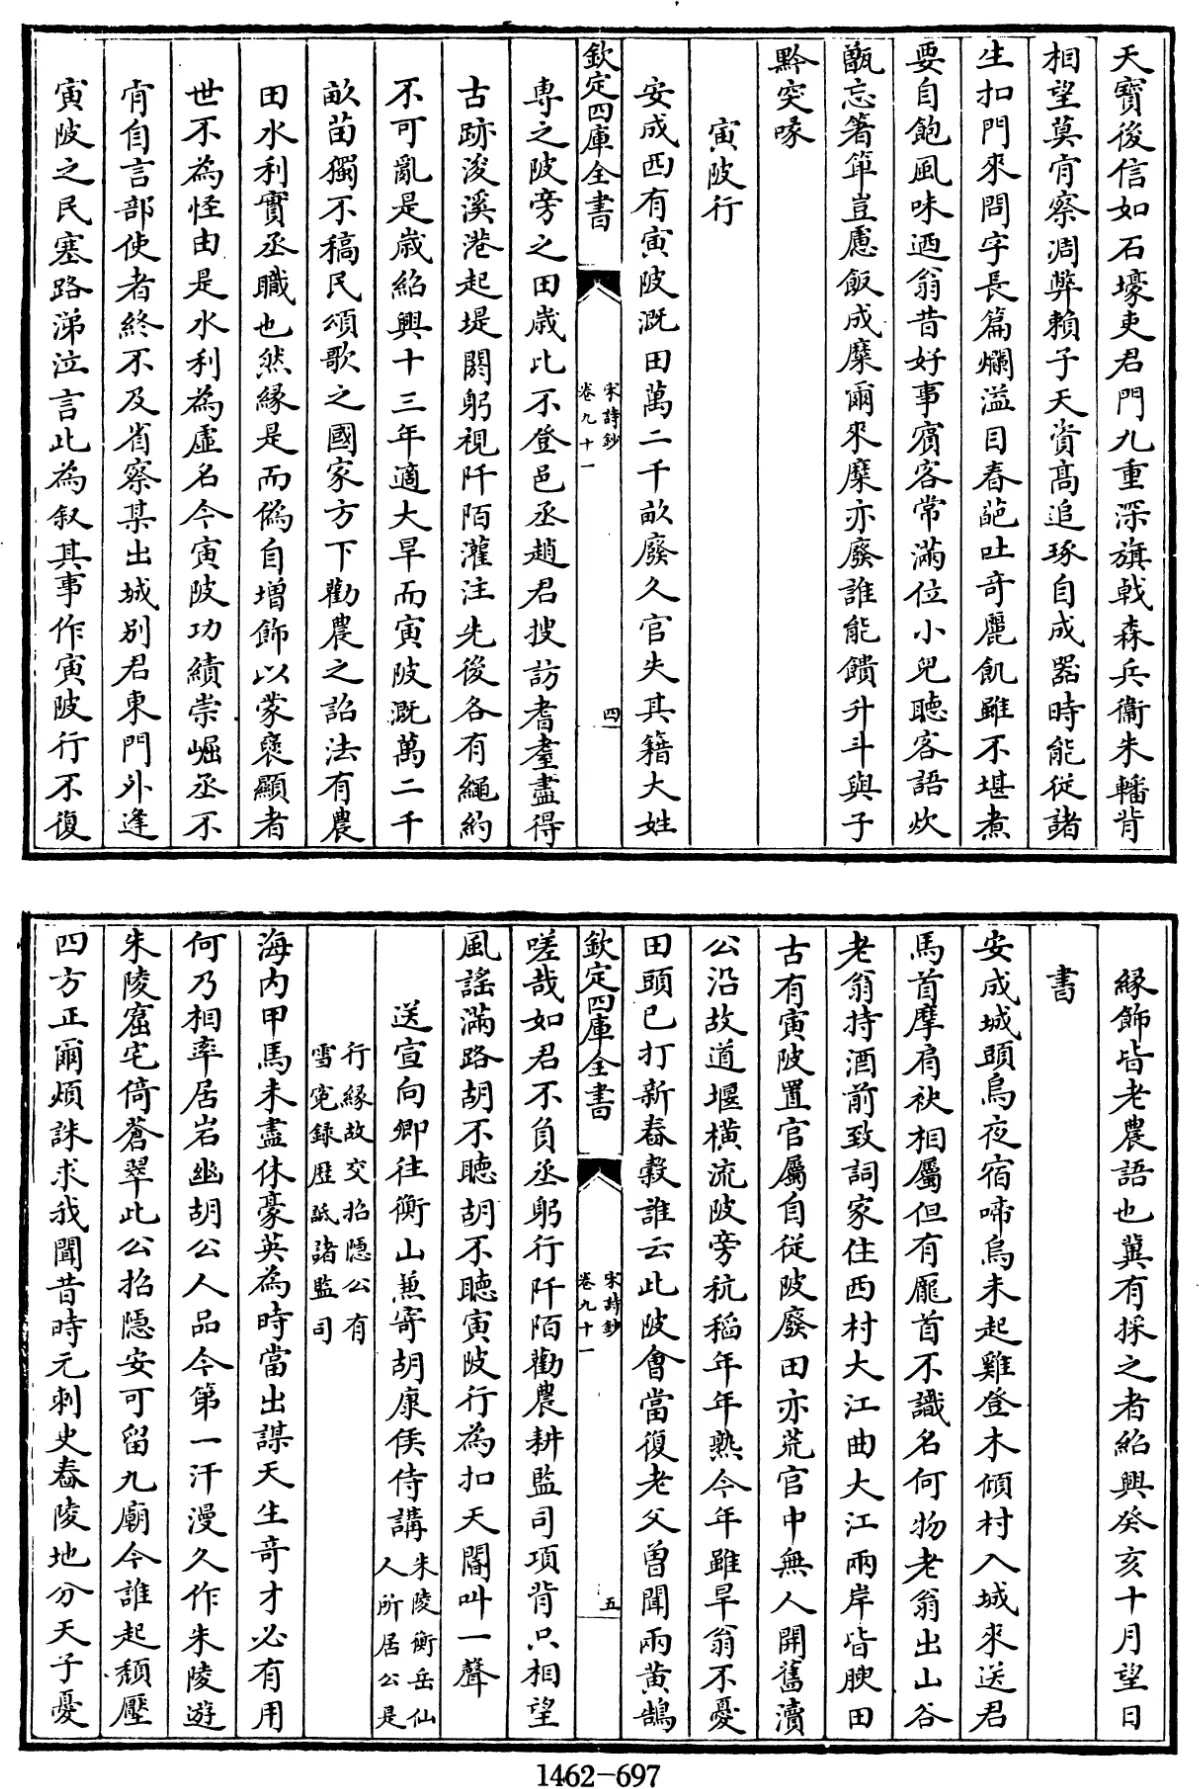 天寳後信如石壕吏君門九重深旗㦸森兵衞朱轓背
相望莫肯察凋弊賴子天資髙追琢自成器時能從諸
生扣門來問字長篇爛溢目春葩吐奇麗飢雖不堪煮
要自飽風味迺翁昔好事賓客常滿位小兒聽客語炊
甑忘箸箄豈慮飯成糜爾來糜亦廢誰能饋升斗與子
黔突喙
寅陂行
安成西有寅陂溉田萬二千畝廢久官失其籍大姓
欽定四庫全書
宋詩鈔
卷九十一
四
専之陂旁之田歳比不登邑丞趙君披訪耆耋盡得
古跡浚溪港起堤閼躬視阡陌灌注先後各有繩約
不可亂是歳紹興十三年適大旱而寅陂溉萬二千
畝苗獨不稿民頌歌之國家方下勸農之詔法有農
田水利實丞職也然緣是而偽自增飾以蒙襃顯者
世不為怪由是水利為虛名今寅陂功績崇崛丞不
肯自言部使者終不及省察某出城别君東門外逢
寅陂之民塞路涕泣言此為叙其事作寅陂行不復
緣飾皆老農語也冀有採之者紹興癸亥十月望日
書
安成城頭烏夜宿啼烏未起雞登木傾村入城來送君
馬首摩肩袂相屬但有龎首不識名何物老翁出山谷
老翁持酒前致詞家住西村大江曲大江兩岸皆腴田
古有寅陂置官屬自從陂廢田亦荒官中無人開舊瀆
公沿故道堰横流陂旁秔稻年年熟今年雖旱翁不憂
田頭已打新舂穀誰云此陂會當復老父曽聞兩黄鵠
欽定四庫全書
宋詩鈔
卷九十一
五
嗟哉如君不負丞躬行阡陌勸農耕監司項背只相望
風謡滿路胡不聽胡不聽寅陂行為扣天閽叫一聲
送宣向卿往衡山兼寄胡康侯侍講朱陵衡岳仙
人所居公是
行緣故交招隱公有
雪寃録歴詆諸監司
海内甲馬未盡休豪英為時當出謀天生奇才必有用
何乃相率居岩幽胡公人品今第一汗漫久作朱陵遊
朱陵窟宅倚蒼翠此公招隱安可留九廟今誰起頹壓
四方正爾煩誅求我聞昔時元刺史舂陵地分天子憂
1462-697